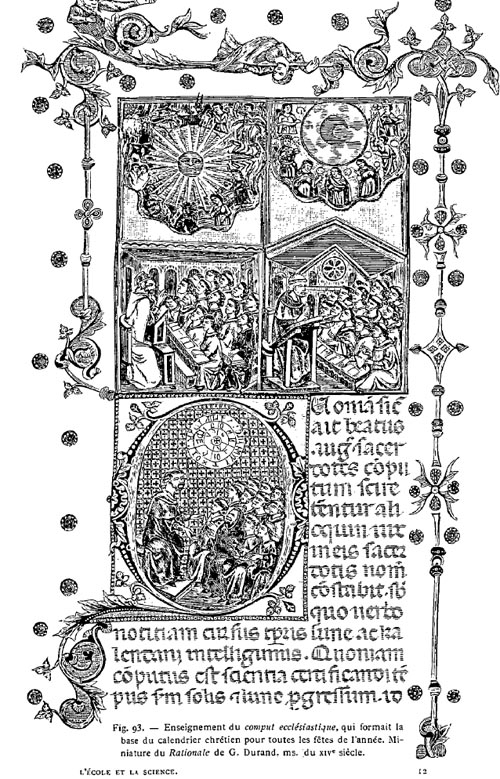 oniā sic
ait beatus
.aug. sacer
dotes cōpu
tum scire
tentur ali
quin uix
in eis sacer
dotis nom̄
cōstabit.
quo uerbo
notitiam cursus tp̄ris lune ac ka
lendarij intelligimus. Quoniam
cōputus est scientia certificandi tē
pus s'm solis lune p̱gressum.
Fig. 93. — Enseignement du comput ecclésiastique, qui formait la
base du calendrier chrétien pour toutes les fêtes de l'année. Mi-
niature du Rationale de G. Durand, ms. du XIVᵉ siècle.
L'ÉCOLE ET LA SCIENCE. 12